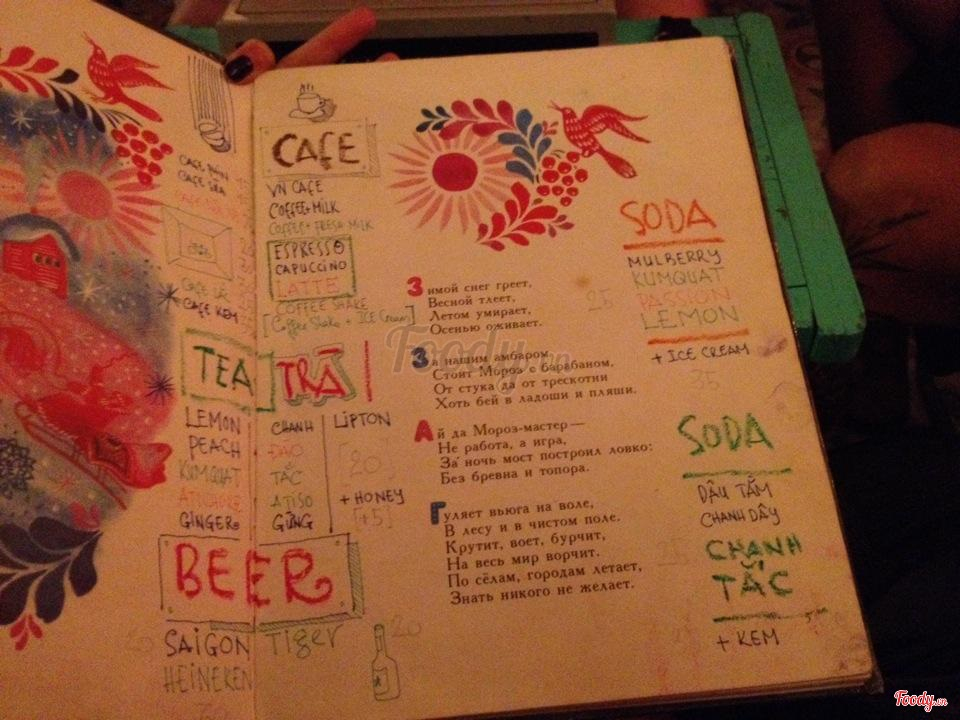 CAFE
CAFE SỮA
CAFE KEM
CAFE
VN CAFE
COFFEE+MILK
COFFEE+ FRESH MILK
ESPRESSO
CAPUCCINO
LATTE
COFFEE SHAKE
[Coffee Shake + ICE Cream]
TEA
LEMON
PEACH
KUMQUAT
ATICHOKE
GINGER
TRÀ
CHANH
ĐÀO
TẮC
ATISO
GỪNG
LIPTON
[20]
+ HONEY
[+5]
BEER
SAIGON
HEINEKEN
Tiger
20
Зимой снег греет,
Весной тлеет,
Летом умирает,
Осенью оживает.
25
За нашим амбаром
Стоит Мороз с барабаном,
От стука да от трескотни
Хоть бей в ладоши и пляши.
Ай да Мороз-мастер —
Не работа, а игра,
За ночь мост построил ловко:
Без бревна и топора.
Гуляет вьюга на воле,
В лесу и в чистом поле.
Крутит, воет, бурчит,
На весь мир ворчит.
По сёлам, городам летает,
Знать никого не желает.
SODA
MULBERRY
KUMQUAT
PASSION
LEMON
+ ICE CREAM
35
SODA
DÂU TẰM
CHANH DÂY
CHANH
TẮC
+ KEM
Foody.vn
Foody.vn